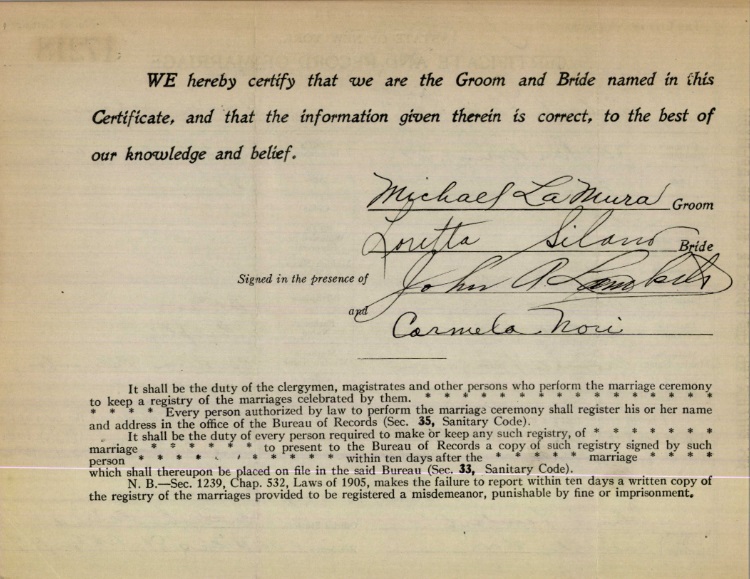 WE hereby certify that we are the Groom and Bride named in this
Certificate, and that the information given therein is correct, to the best of
our knowledge and belief.
Michael LaMura Groom
Loretta Silano Bride
Signed in the presence of John A
and
Carmela Nori
It shall be the duty of the clergymen, magistrates and other persons who perform the marriage ceremony
to keep a registry of the marriages celebrated by them. * * * * * * * * * * * * *
* * * * Every person authorized by law to perform the marriage ceremony shall register his or her name
and address in the office of the Bureau of Records (Sec. 35, Sanitary Code).
It shall be the duty of every person required to make or keep any such registry, of * * * * * *
marriage * * * * * * to present to the Bureau of Records a copy of such registry signed by such
person * * * * * * * * * within ten days after the * * * * * marriage * * * *
which shall thereupon be placed on file in the said Bureau (Sec. 33, Sanitary Code).
N. B.—Sec. 1239, Chap. 532, Laws of 1905, makes the failure to report within ten days a written copy of
the registry of the marriages provided to be registered a misdemeanor, punishable by fine or imprisonment.